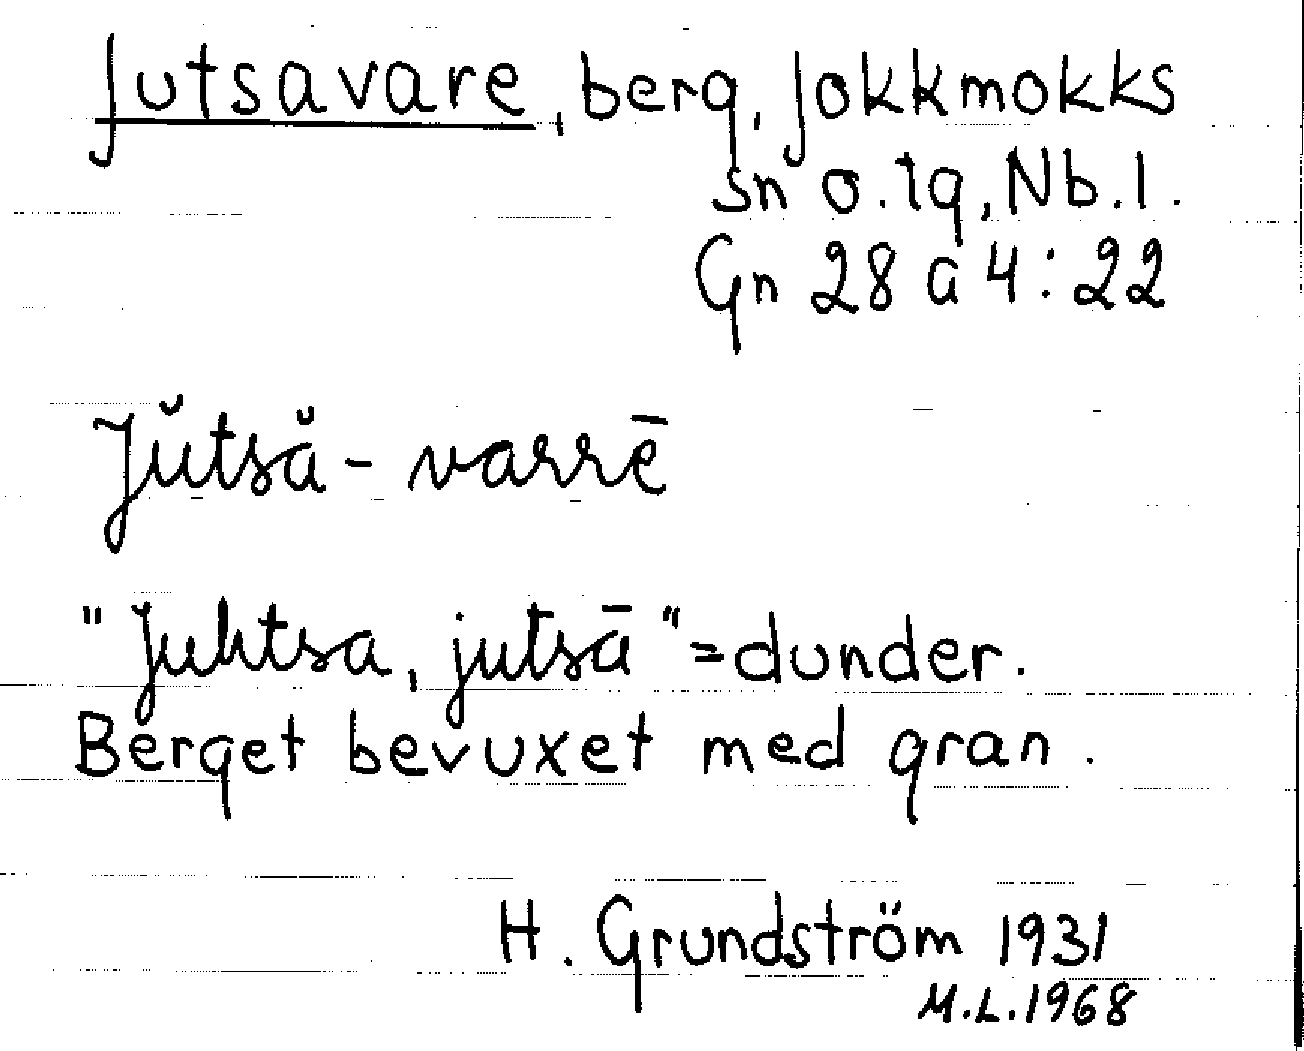 Jutsavare, berg, Jokkmokks
sn o. tg, Nb. l.
Gn 28 a 4:22
Jŭtsă-varrē
"Juhtsa, jutsā" = dunder.
Berget bevuxet med gran.
H. Grundström 1931
M.L. 1968